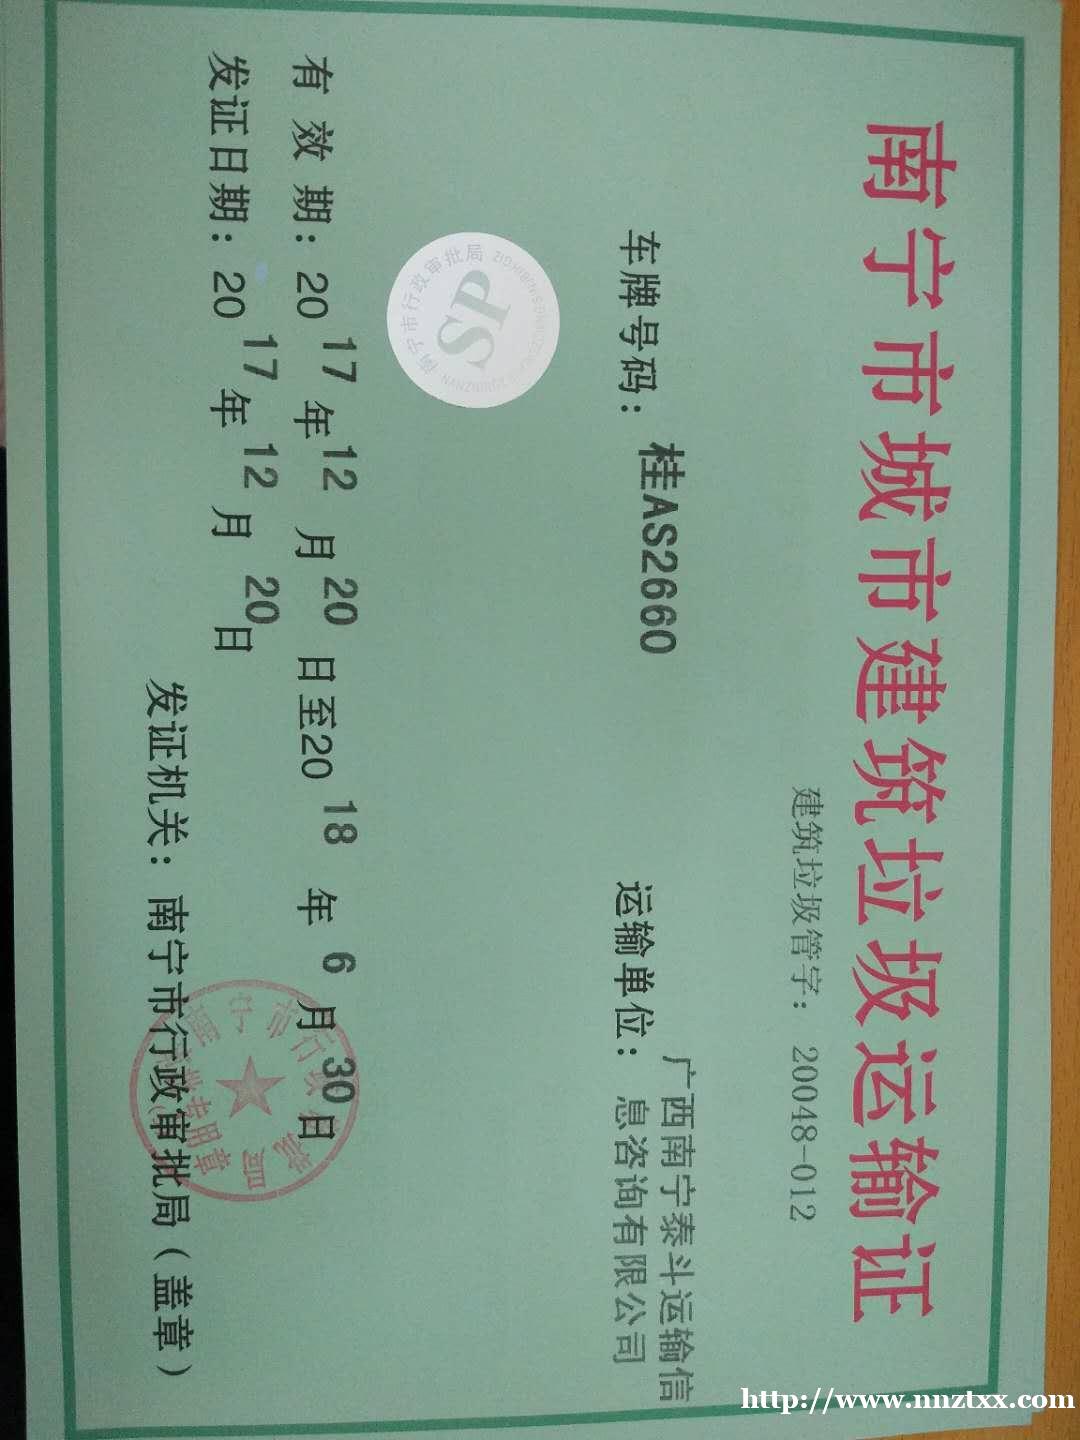 南宁市城市建筑垃圾运输证
建筑垃圾管字：20048-012
车牌号码：桂AS2660
运输单位：广西南宁泰斗运输信
息咨询有限公司
南宁市行政审批局
SP
有效期：2017年12月20日至2018年6月30日
发证日期：2017年12月20日
发证机关：南宁市行政审批局（盖章）
http://www.nnztxx.com